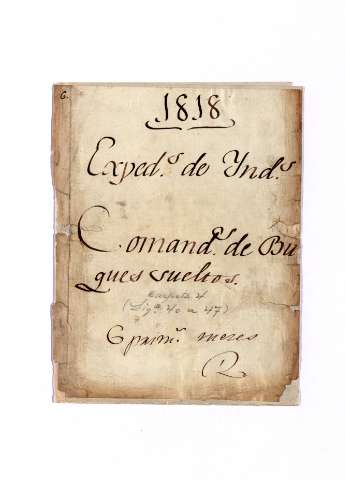 6.
1818
Exped.s de Ynd.s
Comand.es de Bu
ques sueltos.
Carpeta 4
(Dig.s 40 a 47)
6 prim.s meses
R